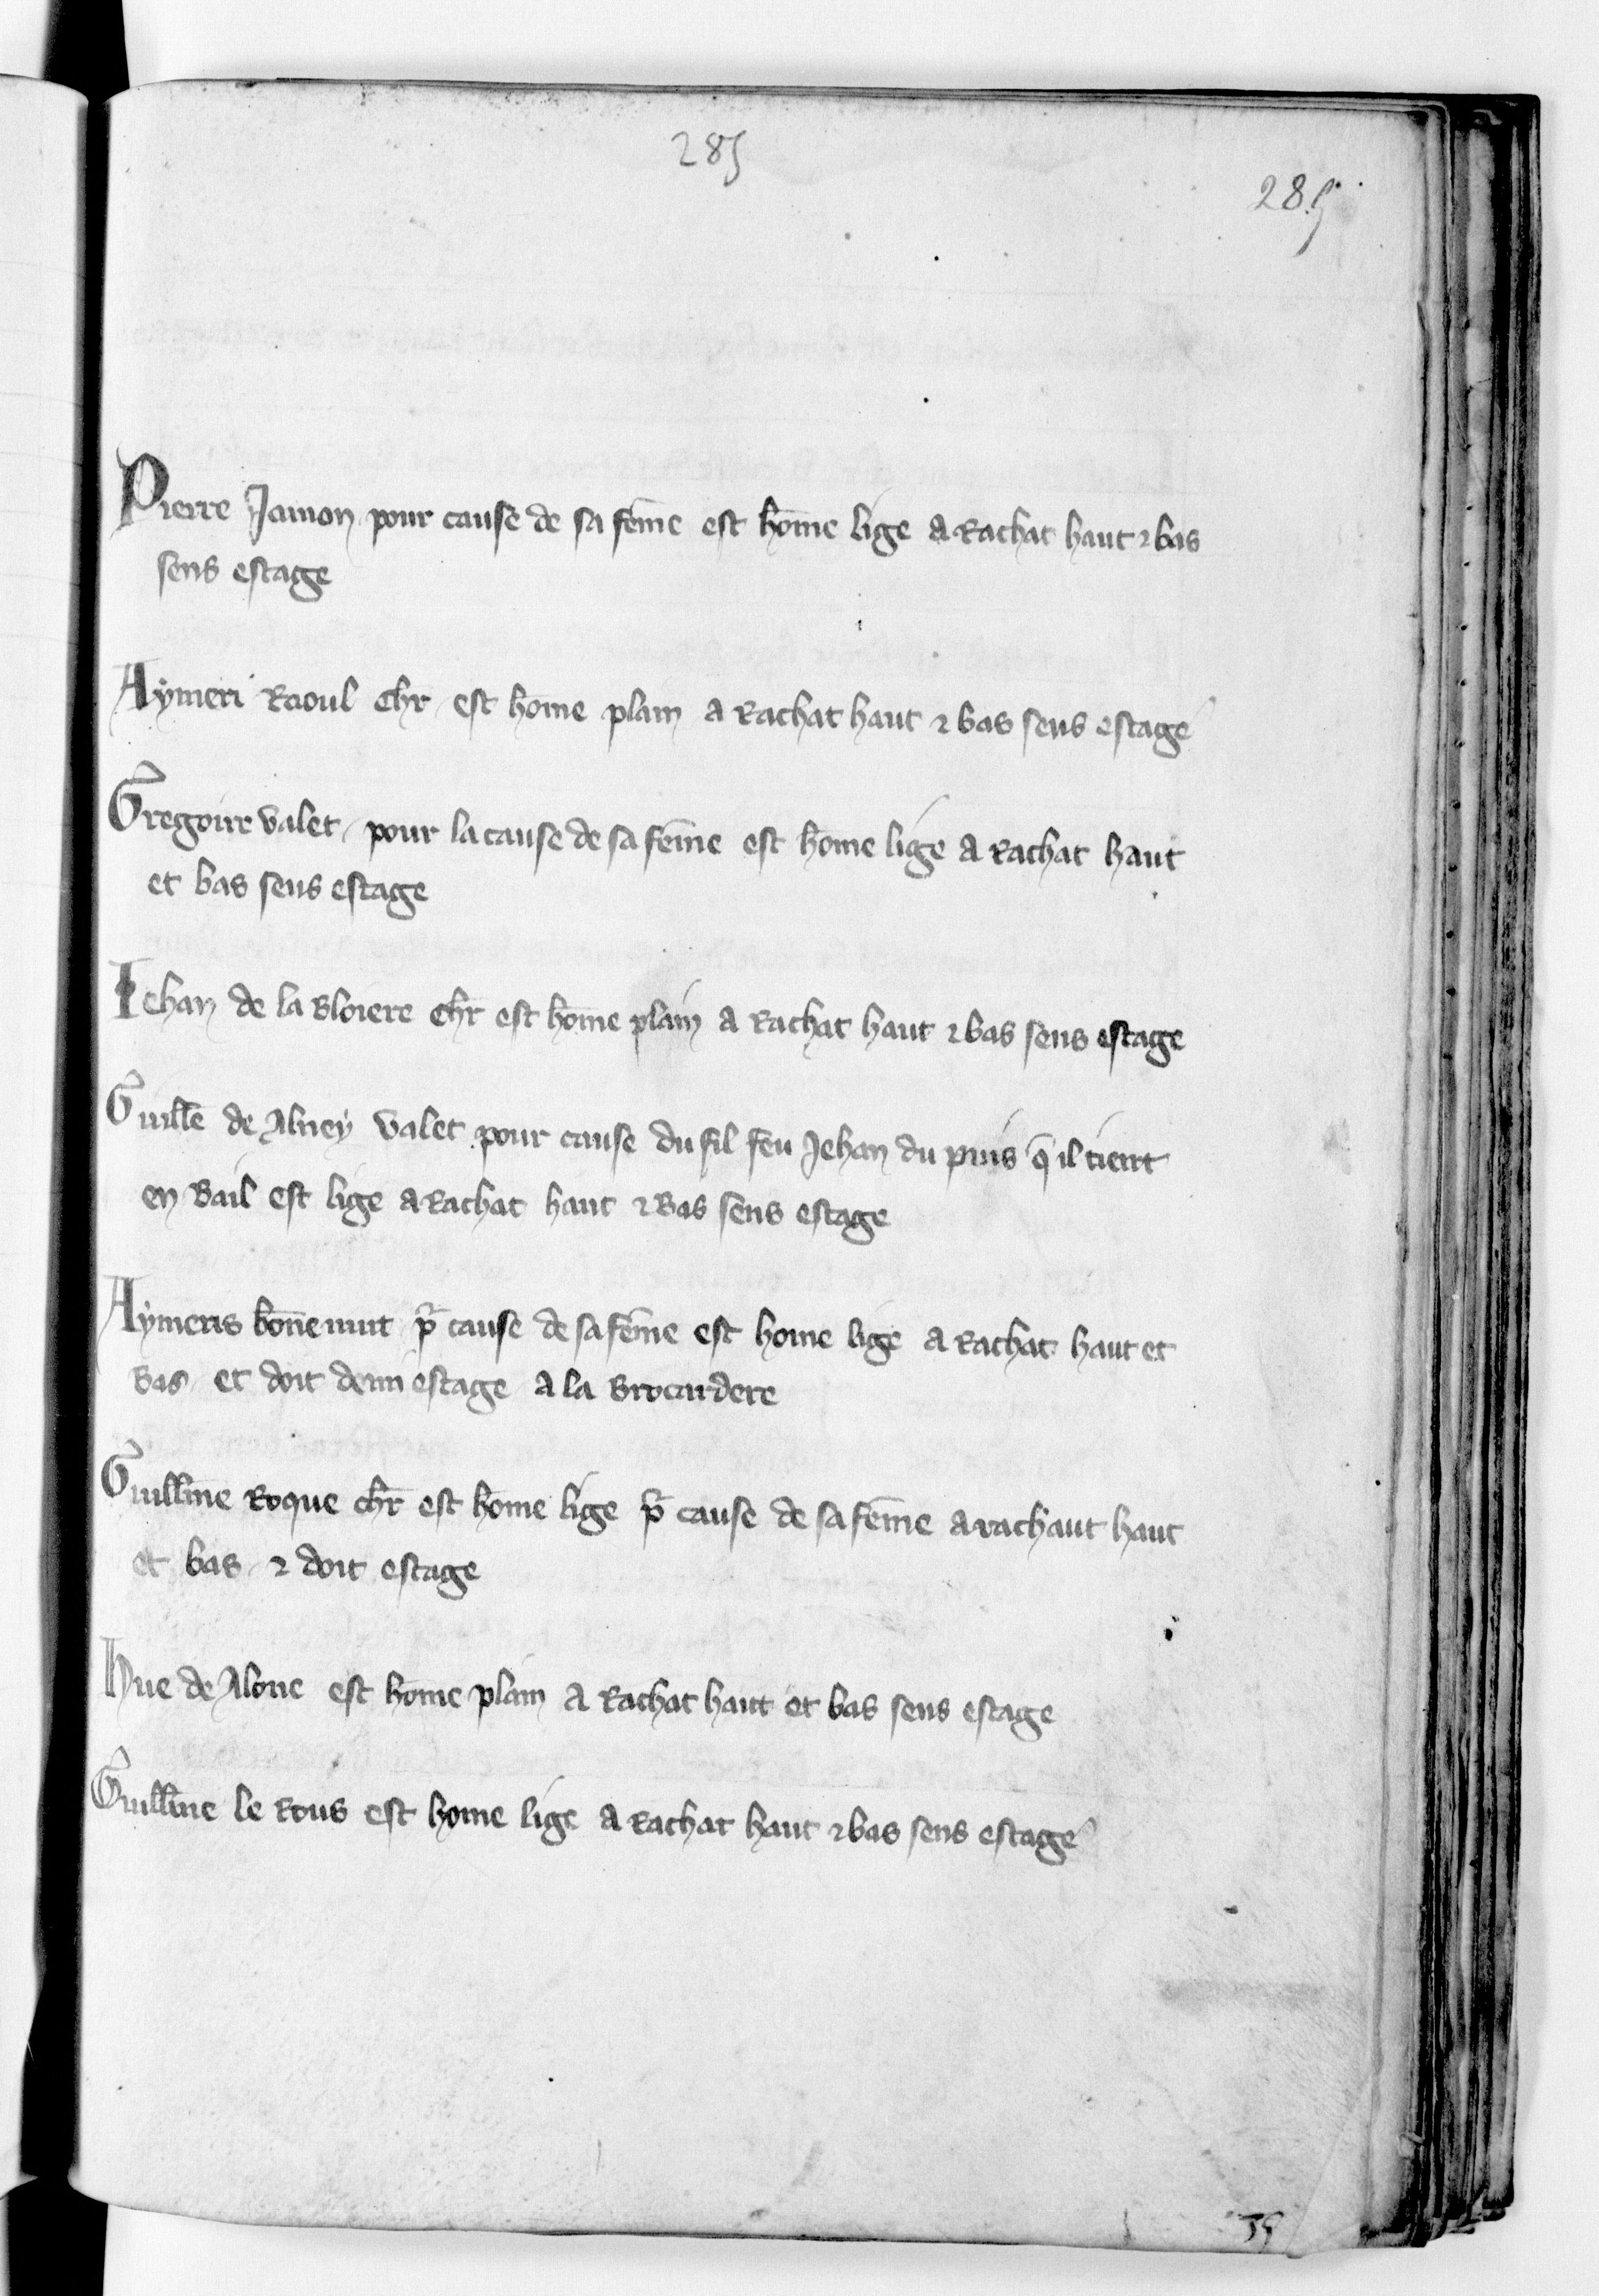 285
285
Pierre Jamon pour cause de sa fēme est hōme lige a Rachat haut ⁊ bas
sens estage
Aymeri Raoul chr̄ est hōme plain a Rachat haut ⁊ bas sens estage
Gregoire valet pour la cause de sa fēme est hōme lige a Rachat haut
et bas sens estage
Iehan de la Bloiere chr̄ est hōme plain a Rachat haut ⁊ bas sens estage
Guillē de Alney valet pour cause du fil feu Jehan du puis q̄ il tient
en Bail est lige a Rachat haut ⁊ Bas sens estage
Aymeris bōnenuit pr̄ cause de sa fēme est home lige a Rachat haut et
Bas et doit demi estage a la Brocardere
Guillm̄e Roque chr̄ est hōme lige pr̄ cause de sa fēme a rachaut haut
et bas ⁊ doit estage
Hue de Aloue est hōme plain a Rachat haut et bas sens estage
Guillm̄e le Rous est home lige a Rachat haut ⁊ bas sens estage